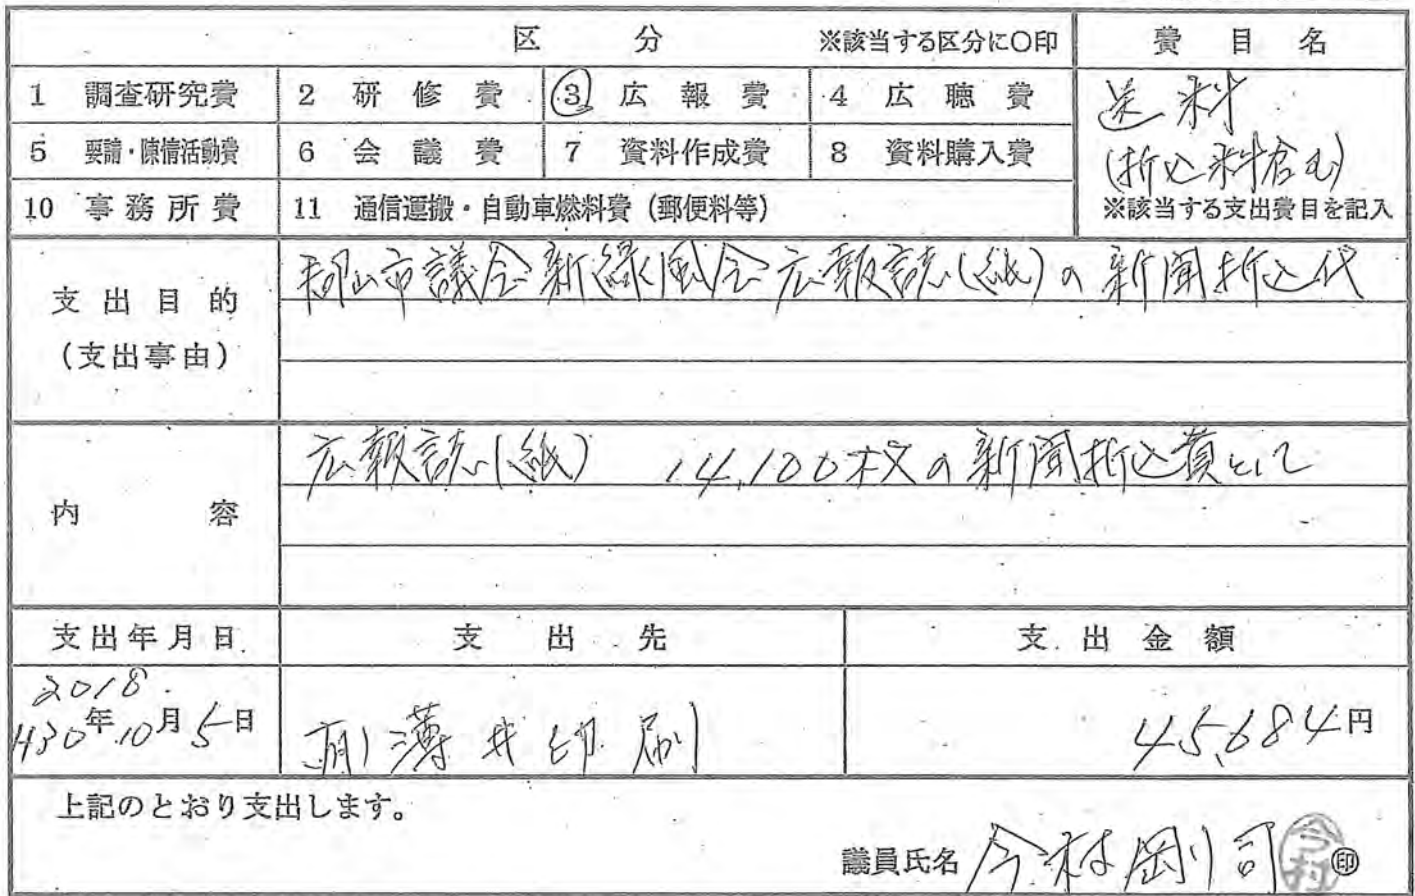 区 分 ※該当する区分に○印 費目名
1 調査研究費 2 研修費 3 広報費 4 広聴費
送料
5 要請・陳情活動費 6 会議費 7 資料作成費 8 資料購入費
(折込料含む)
10 事務所費 11 通信運搬・自動車燃料費(郵便料等)
※該当する支出費目を記入
支出目的
(支出事由)
郡山市議会新緑風会広報誌(紙)の新聞折込代
内容
広報誌(紙) 14,100枚の新聞折込費として
支出年月日 支出先 支出金額
2018.
H30年10月5日 (有)薄井印刷 45,684円
上記のとおり支出します。
議員氏名 今村剛司 ㊞
今村